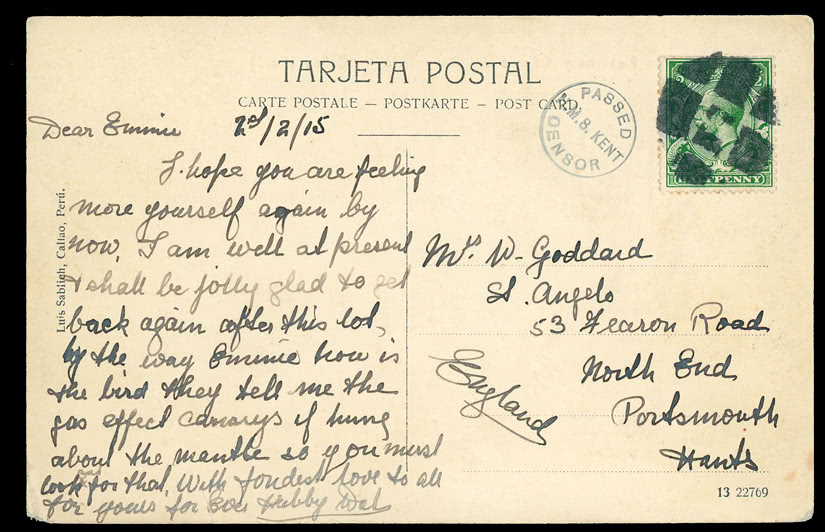 TARJETA POSTAL
CARTE POSTALE — POSTKARTE — POST CARD.
Dear Emmie 2nd/2/15
I hope you are feeling
more yourself again by
now, I am well at present
& shall be jolly glad to get
back again after this lot,
by the way Emmie how is
the bird they tell me the
gas effect canarys if hung
about the mantle so you must
look out for that, With fondest love to all
for yours for Ever Hubby Wal
Luis Sablich, Callao, Perú.
PASSED
H.M.S. KENT
CENSOR
HALFPENNY
Mrs W. Goddard
St. Angelo
53 Fearon Road
North End
Portsmouth
Hants
England
13 22769